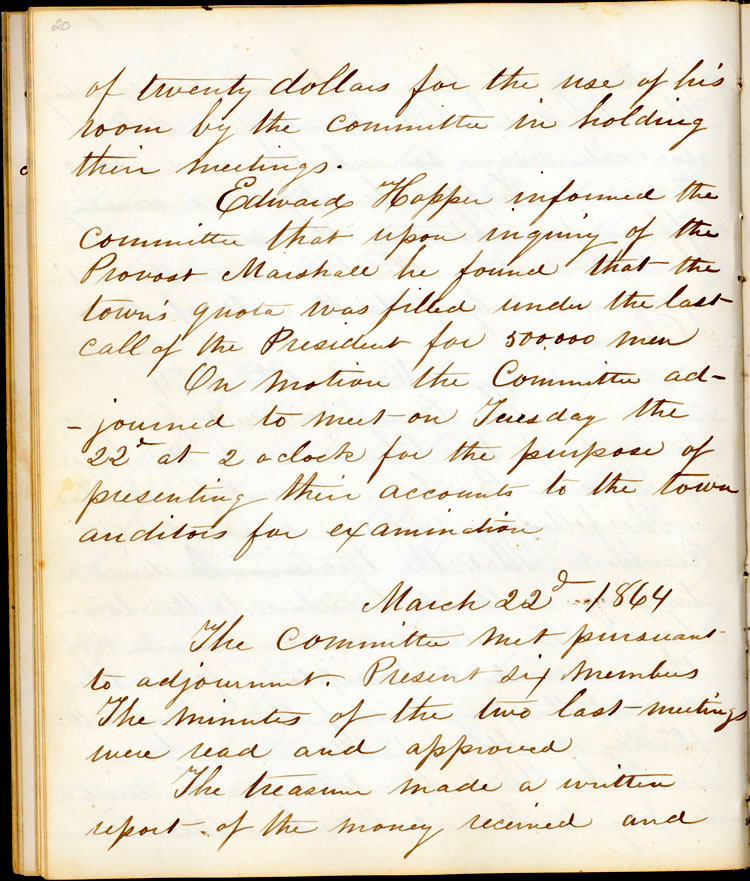 20
of twenty dollars for the use of his
room by the committee in holding
their meetings.
Edward Hopper informed the
committee that upon inquiry of the
Provost Marshall he found that the
town's quota was filled under the last
call of the President for 500000 men
On motion the Committee ad-
-journed to meet on Tuesday the
22d at 2 oclock for the purpose of
presenting their accounts to the town
auditors for examination
March 22d 1864
The Committee met pursuant
to adjournmt. Present six members
The minutes of the two last meetings
were read and approved
The treasurer made a written
report of the money received and